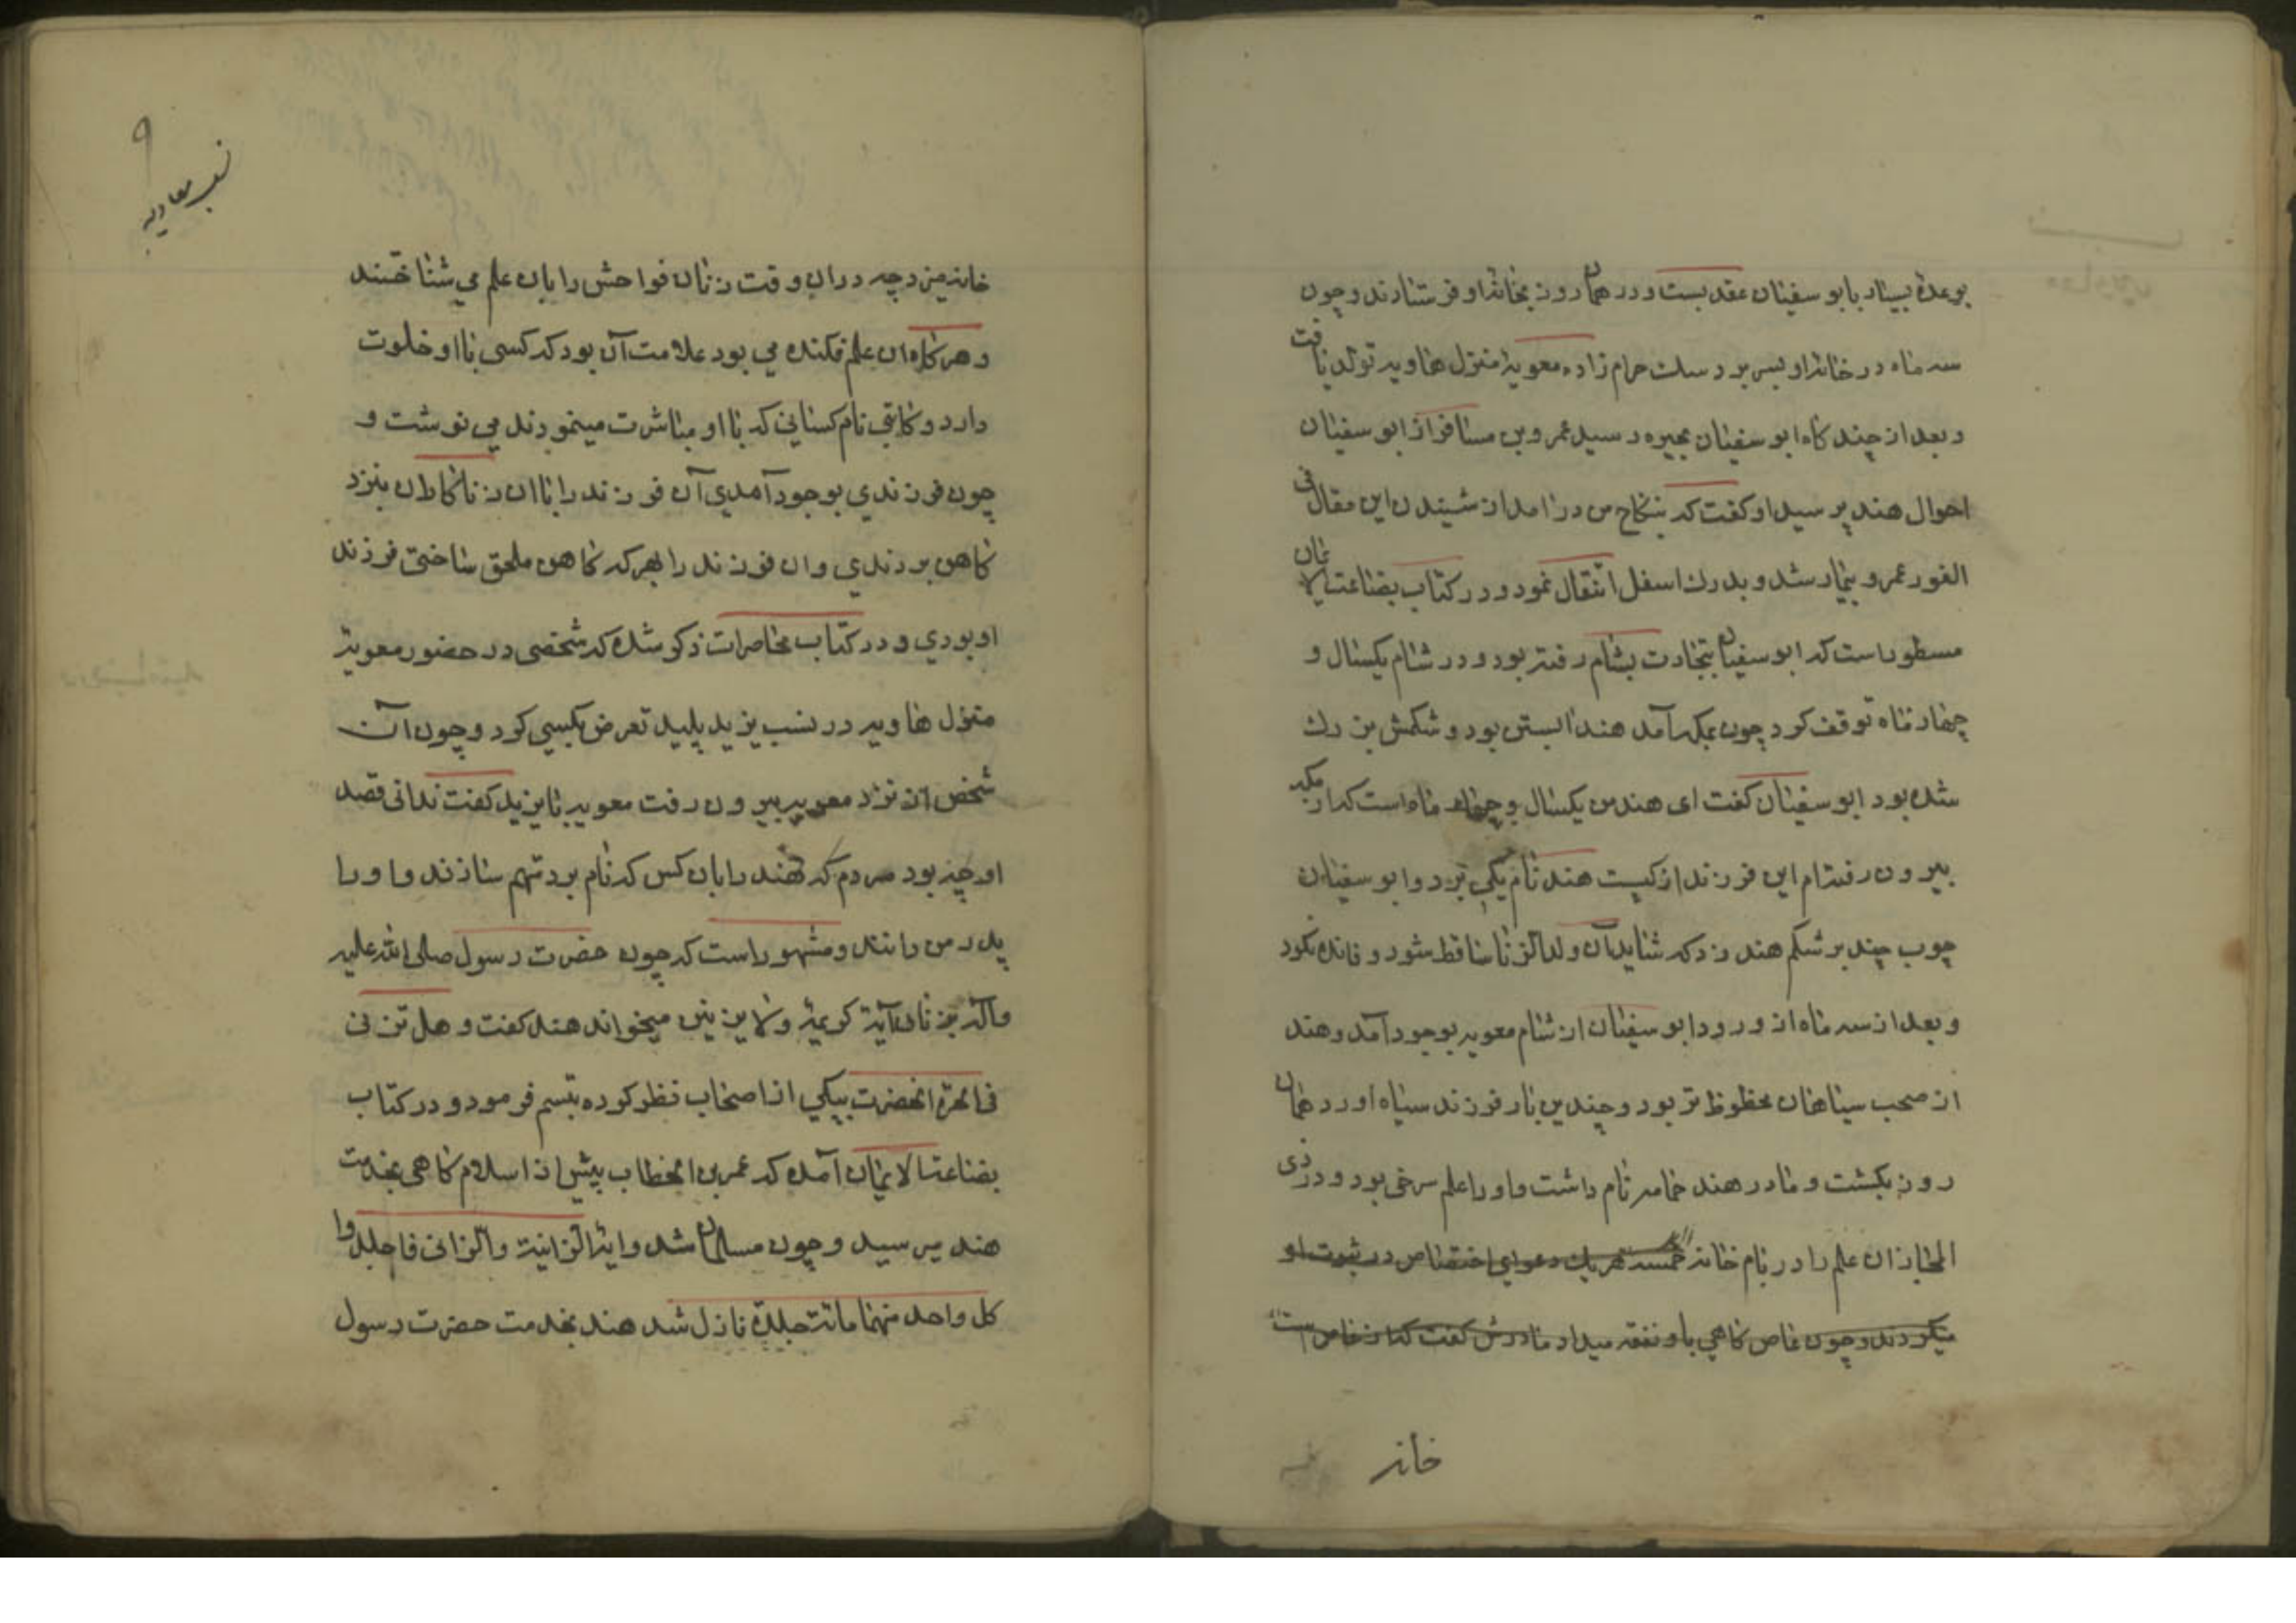 بوعدۀ بسیار بابو سفیان عقد بست و در همان روز بخانۀ او فرستادند و چون
سه ماه در خانۀ او بسر برد سک حرام زاده معویۀ منزل هاویه تولد یافت
و بعد از چند کاه ابو سفیان بحیره رسید عمرو بن مسافر از ابو سفیان
احوال هند پرسید او کفت که بنکاح من در امد از شنیدن این مقال فی
الفور عمرو بیمار شد و بدرک اسفل انتقال نمود و در کتاب بضاعت الایمان
مسطور است که ابو سفیان بتجارت بشام رفته بود و در شام یکسال و
چهار ماه توقف کرد چون بمکه آمد هند ابستن بود و شکمش بزرک
شده بود ابو سفیان کفت ای هند من یکسال و چهار ماه است که از مکه
بیرون رفته ام این فرزند از کیست هند نام یکی برد و ابو سفیان
چوب چند بر شکم هند زد که شاید آن ولد الزنا ساقط شود و فائده نکرد
و بعد از سه ماه از ورود ابو سفیان از شام معویه بوجود آمد و هند
از صحب سیاهان محظوظ تر بود و چندین بار فرزند سیاه اورد همان
روز بکشت و مادر هند حمامه نام داشت و او را علم سرخی بود و در ذی
المجاز ان علم را در بام خانه خمسه هر یک دعوی اختصاص در ثبوت او
میکردند و چون عاص کاهی باو نفقه میداد مادرش کفت که از عاص است
خانه
۹
نسب معاویه
خانه میزد چه در ان وقت زنان فواحش را بان علم می شناختند
و هر کاه ان علم فکنده می بود علامت آن بود که کسی باا و خلوت
دارد و کاتبی نام کسانی که باا و مباشرت مینمودند می نوشت و
چون فرزندی بوجود آمدی آن فرزند را باان زناکاران بنزد
کاهن بردندی و ان فرزند را بهر که کاهن ملحق ساختی فرزند
او بودی و در کتاب محاضرات ذکر شده که شخصی در حضور معویۀ
منزل هاویه در نسب یزید پلید تعرض بکسی کرد و چون آن
شخص از نزد معویه بیرون رفت معویه بایزید کفت ندانی قصد
او چه بود مردم که هند را بان کس که نام برد متهم سازند و او را
پدر من دانند و مشهور است که چون حضرت رسول صلی الله علیه
و آله بزنان آیۀ کریمۀ ولا یزنین میخواند هند کفت و هل تزنی
فی الحرة انحضرت بیکی از اصحاب نظر کرده تبسم فرمود و در کتاب
بضاعت الایمان آمده که عمر بن الخطاب پیش از اسلام کاهی بخدمت
هند میرسید و چون مسلمان شد و ایۀ الزانیة والزانی فاجلدوا
کل واحد منهما مائت جلدة نازل شد هند بخدمت حضرت رسول